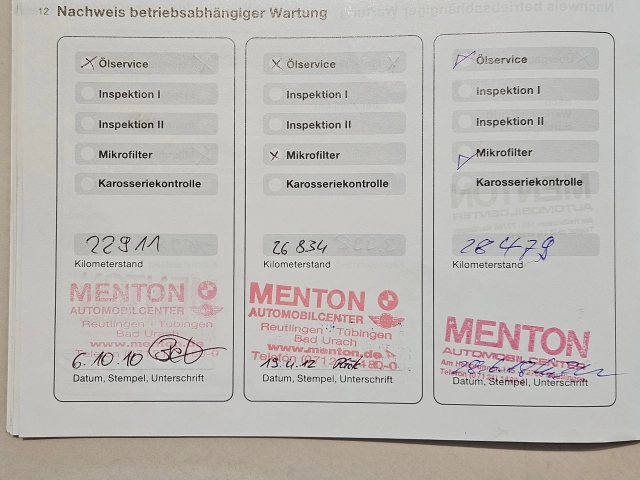 12 Nachweis betriebsabhängiger Wartung
Ölservice
Inspektion I
Inspektion II
Mikrofilter
Karosseriekontrolle
22911
Kilometerstand
MENTON
AUTOMOBILCENTER
Reutlingen · Tübingen
Bad Urach
6.10.10
Datum, Stempel, Unterschrift
Ölservice
Inspektion I
Inspektion II
Mikrofilter
Karosseriekontrolle
26834
Kilometerstand
MENTON
AUTOMOBILCENTER
Reutlingen · Tübingen
Bad Urach
www.menton.de
Telefon
19.4.12
Datum, Stempel, Unterschrift
Ölservice
Inspektion I
Inspektion II
Mikrofilter
Karosseriekontrolle
28479
Kilometerstand
MENTON
AUTOMOBILCENTER
Telefon
Datum, Stempel, Unterschrift